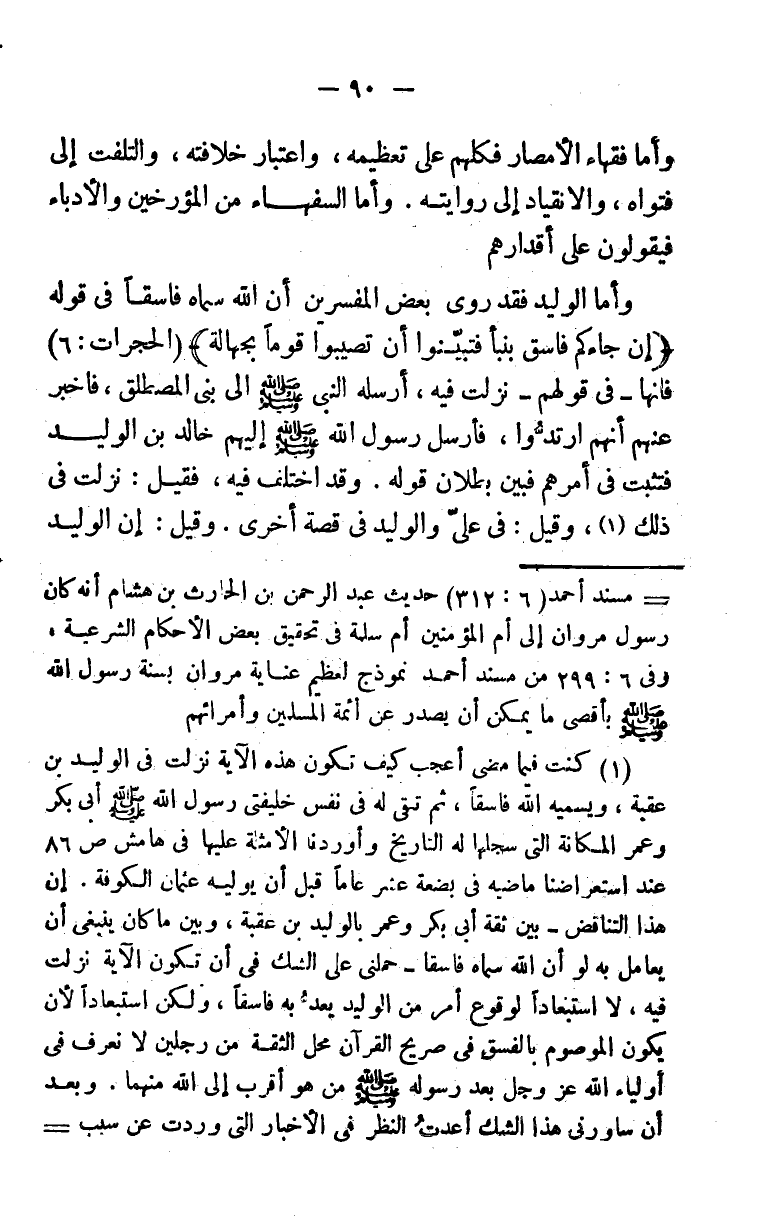 — ٩٠ —
وأما فقهاء الأمصار فكلهم على تعظيمه ، واعتبار خلافته ، والتلفت إلى
فتواه ، والانقياد إلى روايتـه . وأما السفهـــاء من المؤرخين والأدباء
فيقولون على أقدارهم
وأما الوليد فقد روى بعض المفسرين أن الله سماه فاسقـاً فى قوله
﴿إن جاءكم فاسق بنبأ فتبيّـنوا أن تصيبوا قوماً بجهالة﴾ (الحجرات : ٦)
فانها ـ فى قولهم ـ نزلت فيه ، أرسله النبى ﷺ الى بنى المصطلق ، فاخبر
عنهم أنهم ارتدُّوا ، فأرسل رسول الله ﷺ إليهم خالد بن الوليــد
فتثبت فى أمرهم فبين بطلان قوله . وقد اختلف فيه ، فقيـل : نزلت فى
ذلك (١) ، وقيل : فى علىّ والوليد فى قصة أخرى . وقيل : إن الوليـد
== مسند أحمد( ٦ : ٣١٢) حديث عبد الرحمن بن الحارث بن هشام أنه كان
رسول مروان إلى أم المؤمنين أم سلمة فى تحقيق بعض الأحكام الشرعيـة ،
وفى ٦ : ٢٩٩ من مسند أحمـد نموذج لعظيم عنـاية مروان بسنة رسول الله
ﷺ بأقصى ما يمـكن أن يصدر عن أئمة المسلمين وأمرائهم
(١) كنت فيما مضى أعجب كيف تـكون هذه الآية نزلت فى الوليـد بن
عقبة ، ويسميه الله فاسقاً ، ثم تبقى له فى نفس خليفتى رسول الله ﷺ أبى بكر
وعمر المـكانة التى سجلها له التاريخ وأوردنا الأمثلة عليها فى هامش ص ٨٦
عند استعراضنا ماضيه فى بضعة عشر عاماً قبل أن يوليـه عثمان الـكوفة . إن
هذا التناقض ـ بين ثقة أبى بكر وعمر بالوليد بن عقبة ، وبين ما كان ينبغى أن
يعامل به لو أن الله سماه فاسقا ـ حملنى على الشك فى أن تـكون الآية نزلت
فيه ، لا استبعاداً لوقوع أمر من الوليد يعدُّ به فاسقاً ، ولـكن استبعاداً لأن
يكون الموصوم بالفسق فى صريح القرآن محل الثقـة من رجلين لا نعرف فى
أولياء الله عز وجل بعد رسوله ﷺ من هو أقرب إلى الله منهما . وبعـد
أن ساورنى هذا الشك أعدتُ النظر فى الأخبار التى وردت عن سبب ==